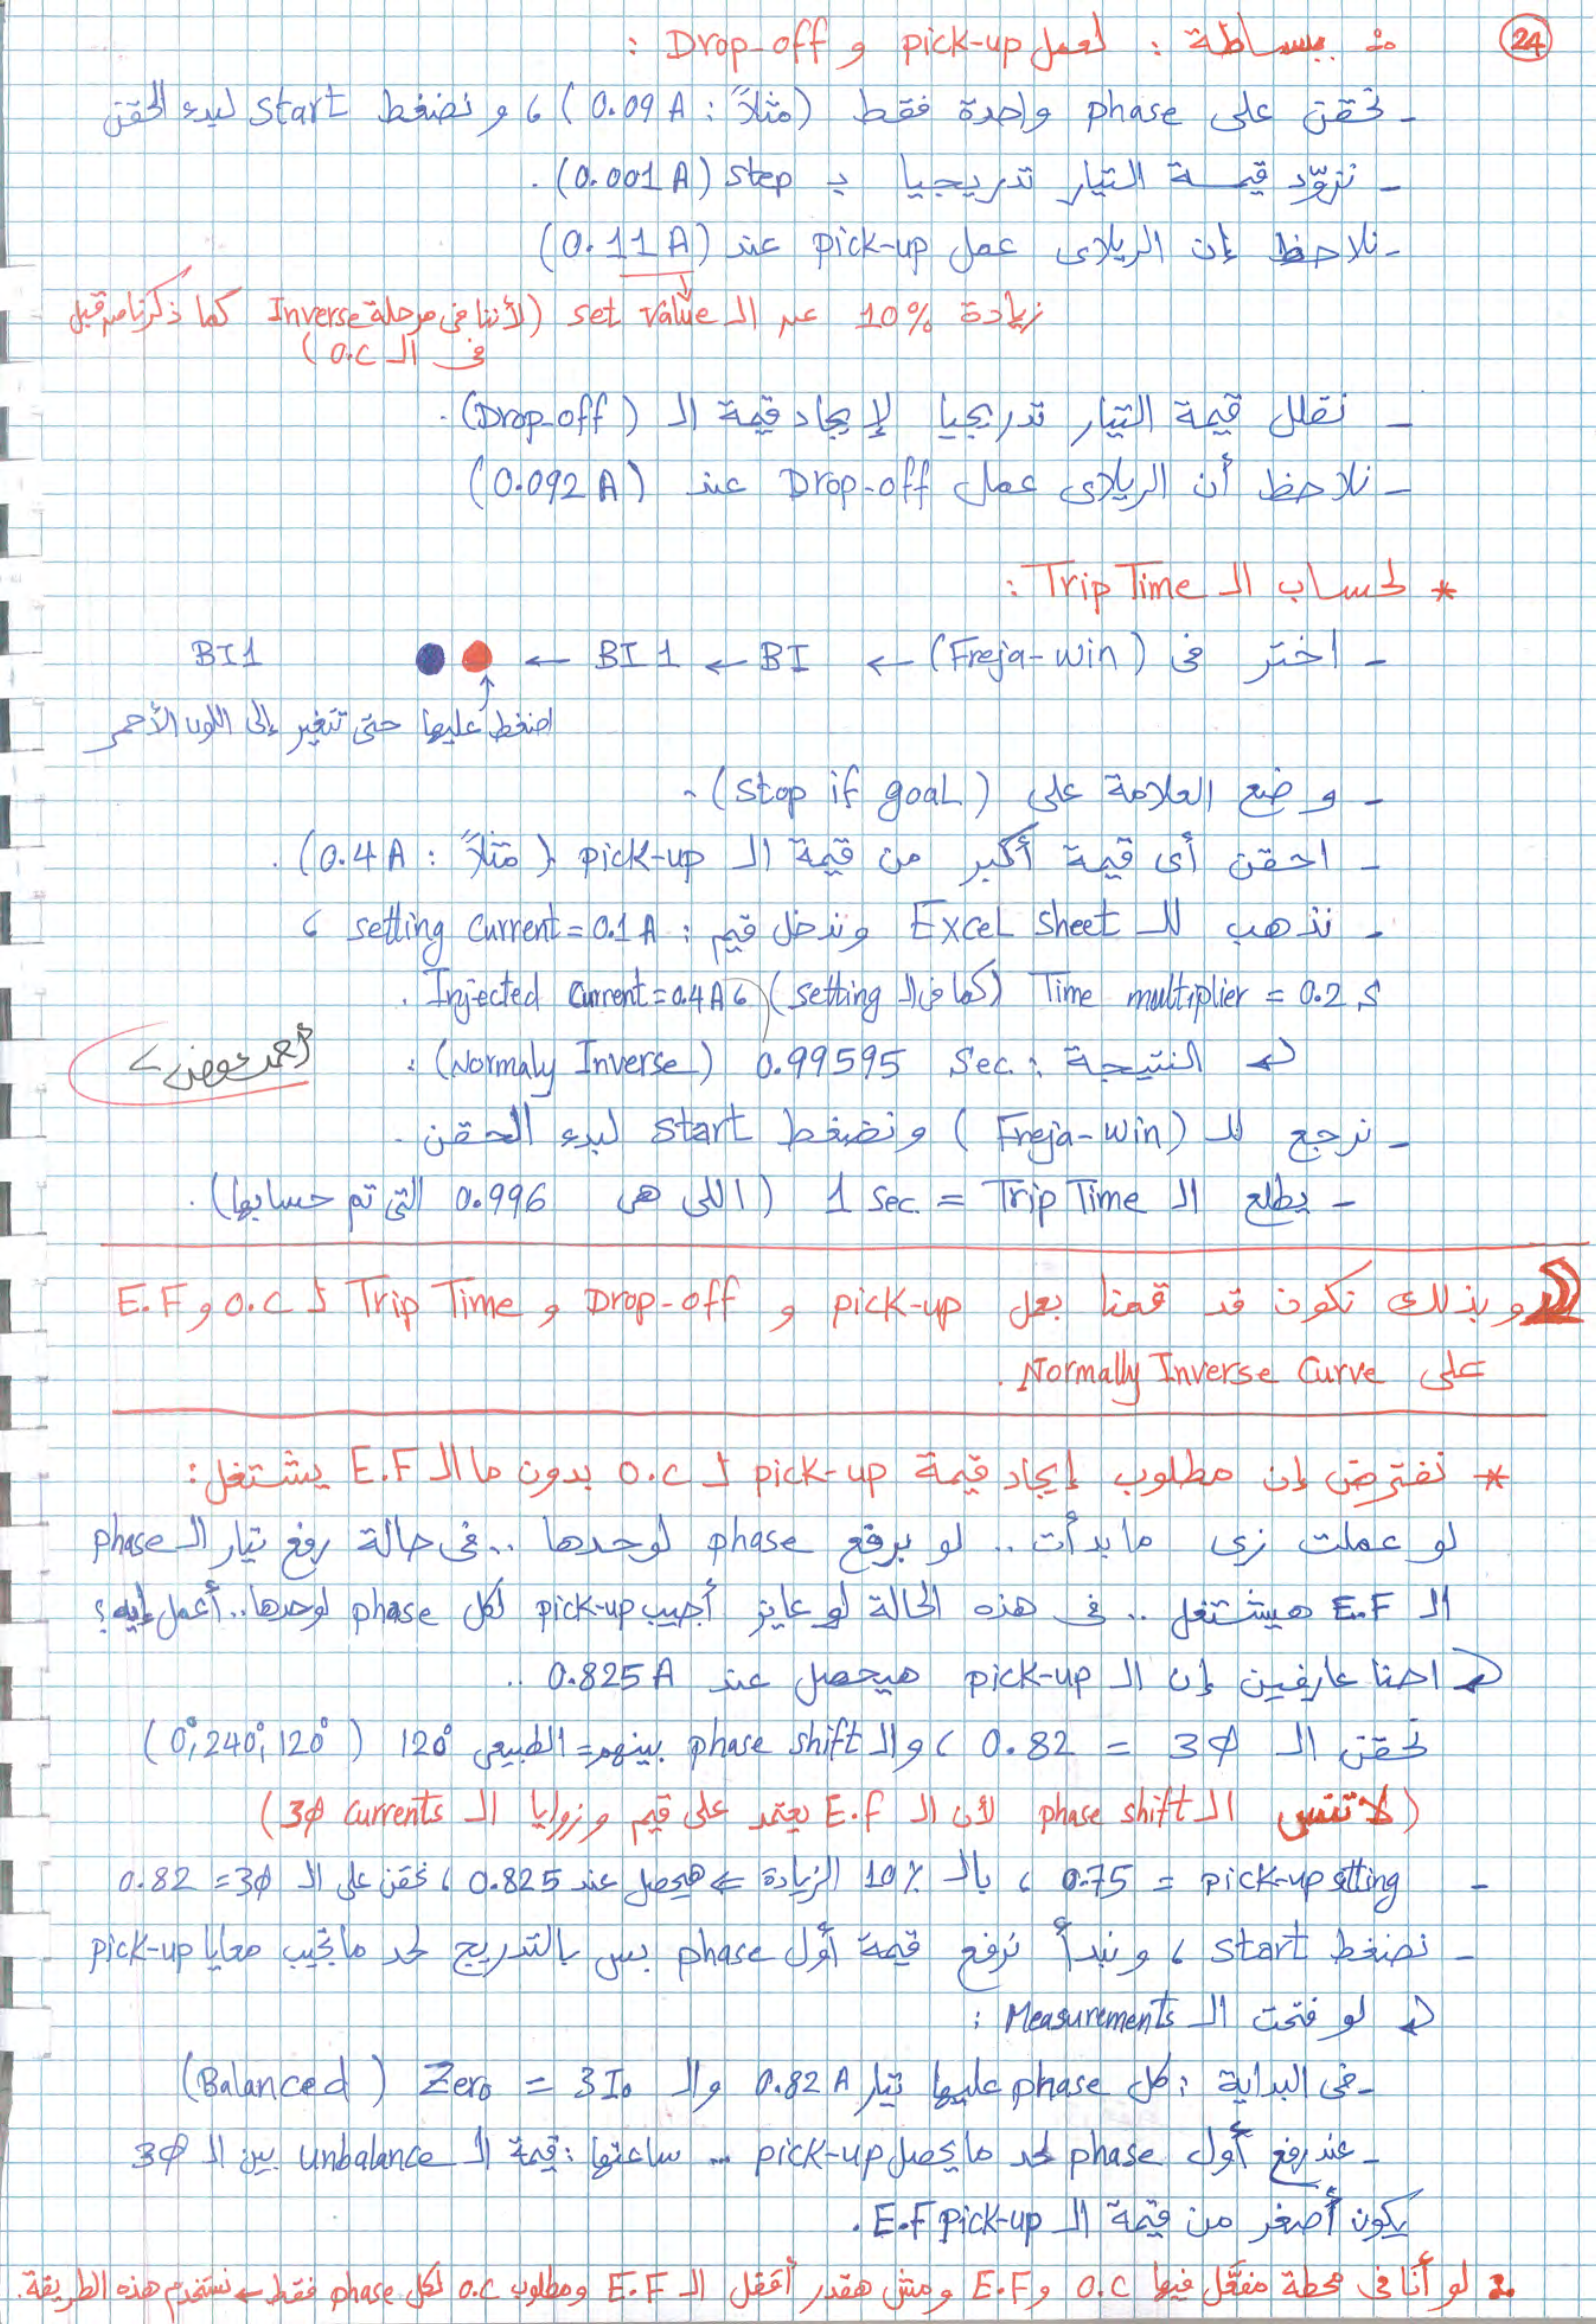 24
∴ ببساطة : لعمل pick-up و Drop-off :
- نحقن على phase واحدة فقط (مثلاً : 0.09 A) ، و نضغط start لبدء الحقن
- نزوّد قيمة التيار تدريجيا بـ step (0.001 A) .
- نلاحظ إن الريلاى عمل pick-up عند (0.11 A)
زيادة 10% عن الـ set value (لأننا فى مرحلة Inverse كما ذكرنا من قبل
فى الـ O.C)
- نقلل قيمة التيار تدريجيا لإيجاد قيمة الـ (Drop-off) .
- نلاحظ أن الريلاى عمل Drop-off عند (0.092 A)
* لحساب الـ Trip Time :
- اختر فى (Freja-win) ← BI ← BI 1 ← BI1
اضغط عليها حتى تتغير إلى اللون الأحمر
- وضع العلامة على (stop if goal) .
- احقن أى قيمة أكبر من قيمة الـ pick-up (مثلاً : 0.4 A) .
- نذهب للـ Excel sheet وندخل قيم : setting current = 0.1 A ،
Time multiplier = 0.2 s (كما فى الـ setting) ، Injected current = 0.4 A .
النتيجة : 0.99595 Sec. (Normaly Inverse) :
أحمد عوض
- نرجع للـ (Freja-win) ونضغط start لبدء الحقن .
- يطلع الـ Trip Time = 1 sec. (اللى هى 0.996 التى تم حسابها) .
وبذلك نكون قد قمنا بعمل pick-up و Drop-off و Trip Time لـ O.C و E.F
على Normally Inverse Curve .
* نفترض إن مطلوب إيجاد قيمة pick-up لـ O.C بدون ما الـ E.F يشتغل :
لو عملت زى ما بدأت .. لو برفع phase لوحدها .. فى حالة رفع تيار الـ phase
الـ E.F هيشتغل .. فى هذه الحالة لو عايز أجيب pick-up لكل phase لوحدها .. أعمل إيه ؟
احنا عارفين إن الـ pick-up هيحصل عند 0.825 A ..
نحقن الـ 3Ø = 0.82 ، والـ phase shift بينهم = الطبيعى 120° (0°, 240°, 120°)
(لا تنس الـ phase shift لأن الـ E.F يعتمد على قيم وزوايا الـ 3Ø currents)
- pick-up setting = 0.75 ، بالـ 10% الزيادة ⇐ هيحصل عند 0.825 ، نحقن على الـ 3Ø = 0.82
- نضغط start ، ونبدأ نرفع قيمة أول phase بس بالتدريج لحد ما تجيب معايا pick-up
لو فتحت الـ Measurements :
- فى البداية : كل phase عليها تيار 0.82 A والـ 3I₀ = Zero (Balanced)
- عند رفع أول phase لحد ما يحصل pick-up ... ساعتها : قيمة الـ unbalance بين الـ 3Ø
يكون أصغر من قيمة الـ E.F pick-up .
∴ لو أنا فى محطة مفعّل فيها O.C و E.F ومش هقدر أقفل الـ E.F ومطلوب O.C لكل phase فقط ← نستخدم هذه الطريقة .